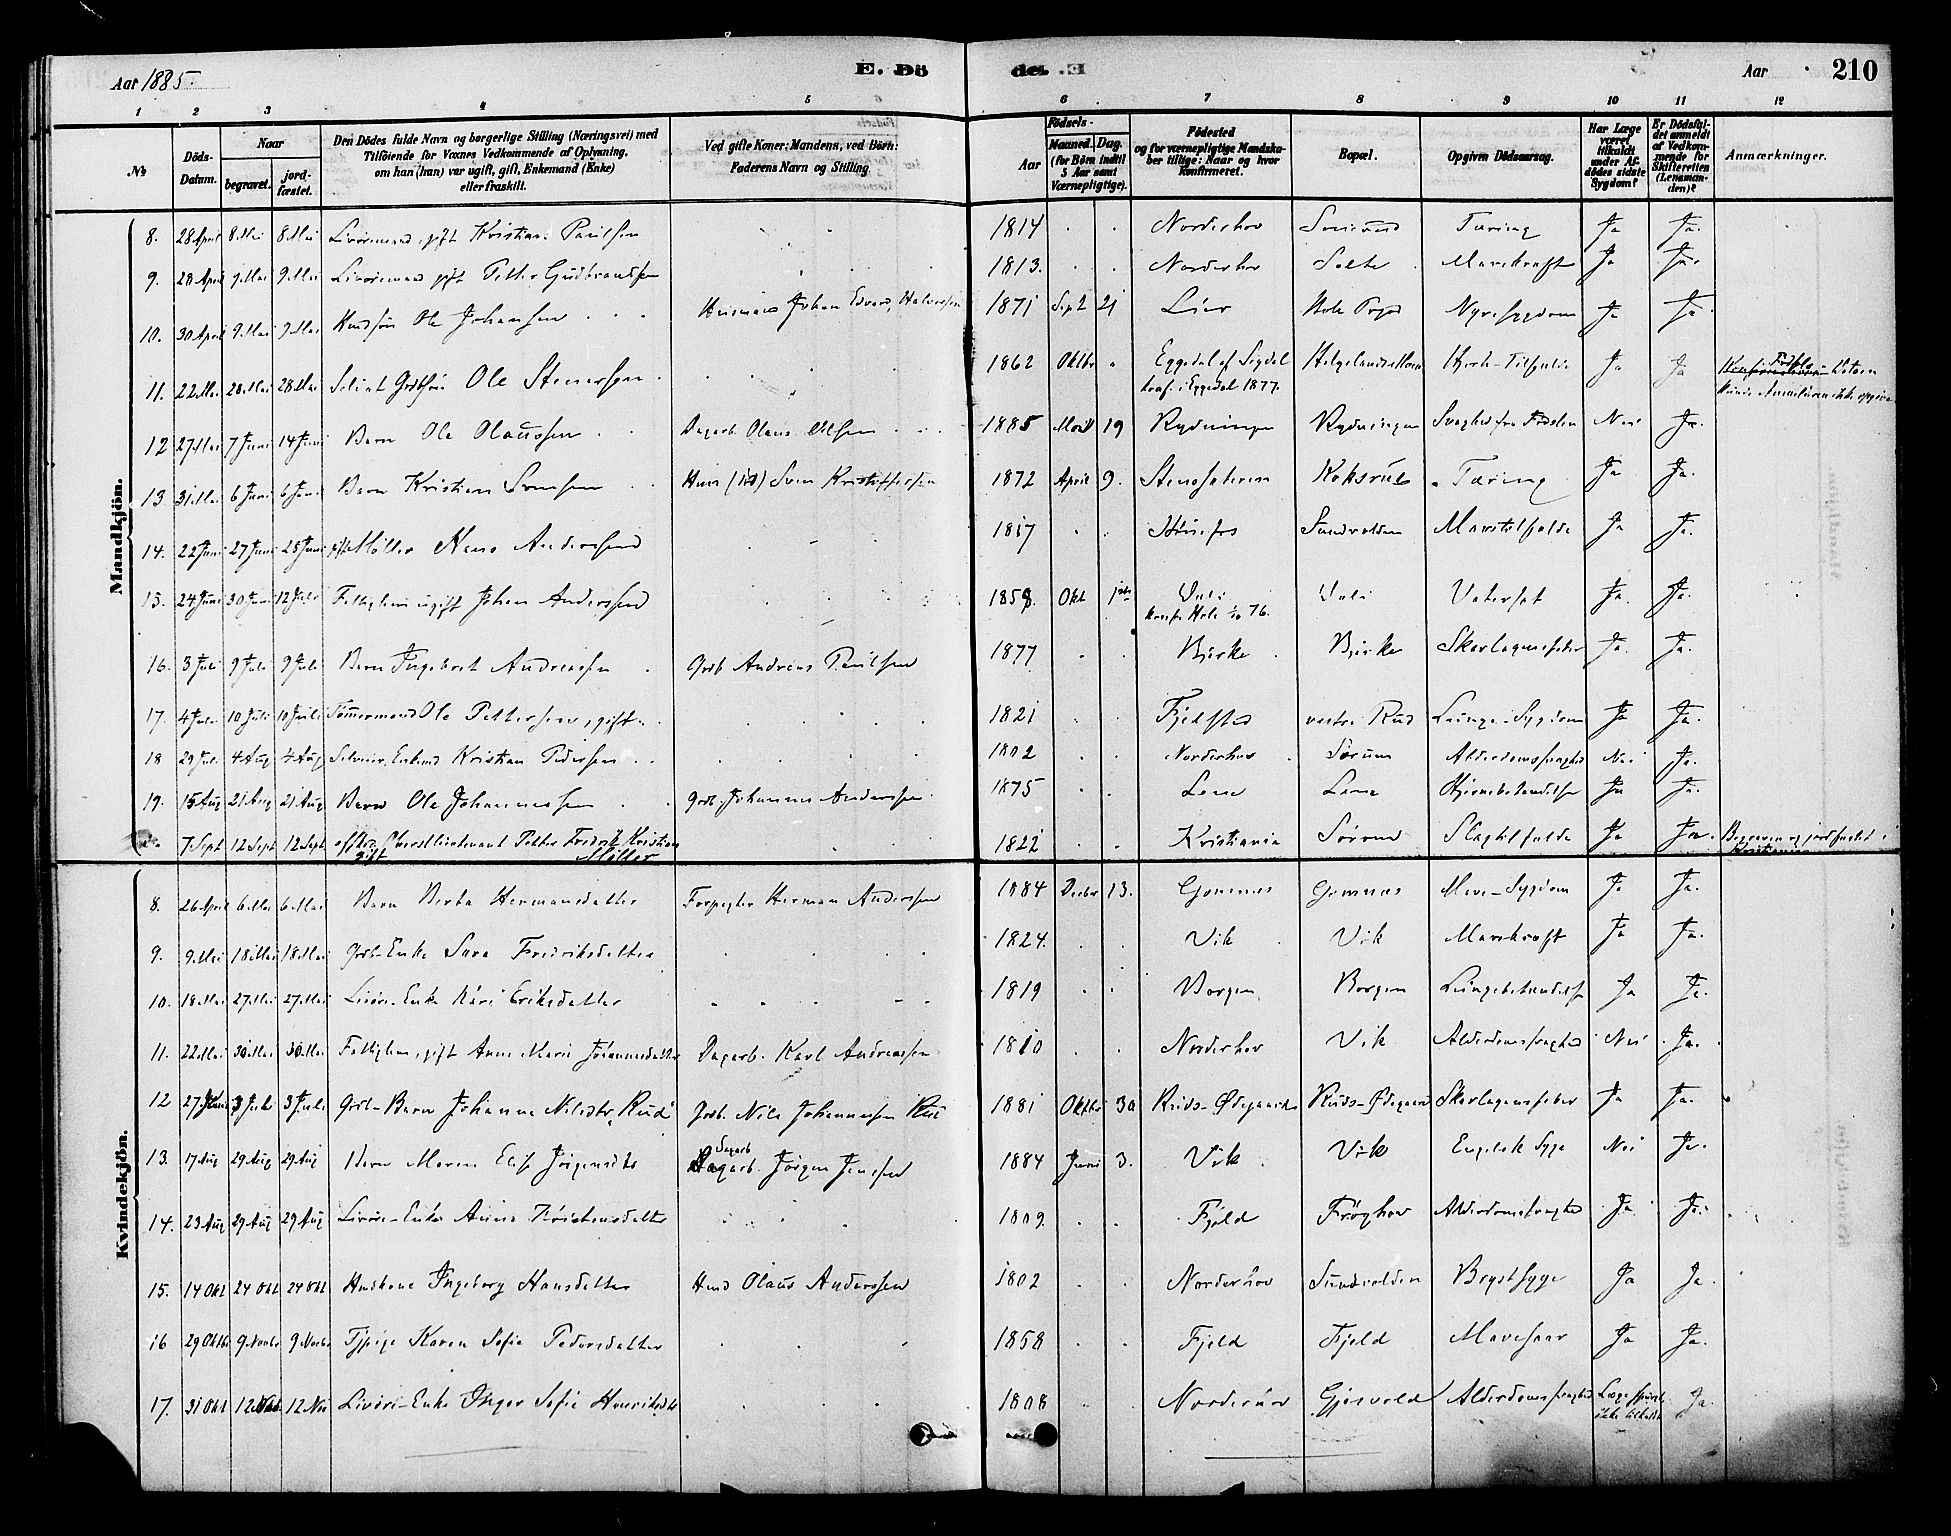 Aar 1885. E. Dö
de. E Aar 210
1 2 3 4 5 6 7 8 9 10 11 12
No
Döds-Datum.
Naar
begravet.
jord-fæstet.
Den Dödes fulde Navn og borgerlige Stilling (Næringsvei) med
Tilföiende for Voxnes Vedkommende af Oplysning,
om han (hun) var ugift, gift, Enkemand (Enke)
eller fraskilt.
Ved gifte Koner: Mandens, ved Börn:
Faderens Navn og Stilling.
Aar
Födsels-
Maaned. Dag.
(for Börn indtil
5 Aar samt
Værnepligtige).
Födested
og for værnepligtige Mandska-
ber tillige: Naar og hvor
konfirmeret.
Bopæl.
Opgiven Dödsaarsag.
Har Læge
været
tilkaldt
under Af-
dödes sidste
Sygdom?
Er Dödsfal-
det anmeldt
af Vedkom-
mende for
Skifteretten
(Lensman-
den)?
Anmærkninger.
Mandkjön.
8. 28 April 8. Mai 8. Mai gift Kristian Paulsen 1814 Norderhov Tæring Ja Ja.
9. 28 April 9. Mai 9. Mai gift Petter Gudbrandsen 1813. Norderhov Selte Mavekræft Ja Ja.
10. 30 April 9. Mai 9. Mai Ole Johansen Husmand Johan Edvard Halvorsen 1871 Sept 21 Lier Hole Prgd Nyresygdom Ja Ja.
11. 22 Mai 28. Mai 28 Mai Ole Steenersen 1862 Oktbr Eggedal af Sigdal Ja Ja
konf. i Eggedal 1877.
12 27 Mai 7 Juni 14 Juni Barn Ole Olaussen Dagarb. Olaus Olsen 1885 19 Rydningen Rydningen Svaghed fra Fødslen Nei Ja.
13 31 Mai 6 Juni 6 Juni Barn Kristian Svensen Sven Kristoffersen 1872 April 9. Koksrud Tæring Ja Ja.
14. 22 Juni 27 Juni 28 Juni gift Møller Hans Anderssen 1817 Hönefos Sundvolden Ja Ja.
15. 24 Juni 30 Juni 12 Juli Fattiglem ugift Johan Anderssen 1858. Okt Vatersot Ja. Ja.
konf. Hole 76.
16. 3 Juli 9 Juli 9 Juli Barn Ingebret Andreassen Grdb Andreas Paulsen 1877 Bjerke Bjerke Skarlagensfeber Ja. Ja.
17. 4 Juli 10 Juli 10 Juli Tömmermand Ole Pettersen, gift 1821 Fjeldstad vestre Rud Lunge-Sygdom Ja Ja.
18 29 Juli 4 Aug 4 Aug Kristian Pedersen 1802 Norderhov Sørum Alderdomssvaghed Nei Ja.
19. 15 Aug 21 Aug 21 Aug Barn Ole Johannesen Grdb. Johannes Anderssen 1875 Lene Lene Hjernebetændelse Ja Ja.
7 Sept 12 Sept 12 Sept Oberstlieutenant Petter Fredrik Kristian 1822 Kristiania Sørum Slagtilfælde Ja Ja. Begraven og jordfæstet i
gift Müller Kristiania
Kvindekjön.
8. 26 April 6. Mai 6. Mai Barn Berta Hermansdatter Forpagter Herman Anderssen 1884 Decbr 13. Gomnes Gomnes Mave-Sygdom Ja Ja.
9. 9. Mai 18 Mai 18 Mai Grdb-Enke Sara Fredriksdatter 1824. Vik Vik Mavekræft Ja Ja.
10. 18. Mai 27. Mai 27. Mai Enke Kari Eriksdatter 1819 Borgen Borgen Lungebetændelse Ja Ja.
11. 22 Mai 30 Mai 30 Mai Fattiglem, gift Anne Marie Johannesdatter Dagarb. Karl Andreassen 1810 Norderhov Vik Alderdomssvaghed Nei Ja.
12 27 Juni 3 Juli 3 Juli Grdb-Barn Johanne Nilsdtr. Rud Grdb. Nils Johannesen Rud 1881 Oktbr 30 Ruds-Ødegaarden Ruds-Ødegaard Skarlagensfeber Ja Ja.
13. 17 Aug 29 Aug 29 Aug Barn Maren Elise Jörgensdtr Dagarb. Jörgen Jensen 1884 Juni 3. Vik Vik Engelsk Syge Nei Ja.
14. 23 Aug 29 Aug 29 Aug Enke Anne Kristensdatter 1809 Fjeld Frøyhov Alderdomssvaghed Ja Ja.
15. 14 Okt 24 Okt 24 Okt Huskone Ingeborg Hansdatter Husmd Olaus Anderssen 1802 Norderhov Sundvolden Brystsyge Ja Ja.
16 29 Oktbr 9 Novbr 9 Novbr Tjpige Karen Sofie Pedersdatter 1858 Fjeld Fjeld Mavesaar Ja Ja.
17. 31 Okt 12 Nov 12 Nov Enke Inger Sofie Henriksdtr 1808 Norderhov Gjesvold Alderdomssvaghed Læge ikke tilkaldt Ja.